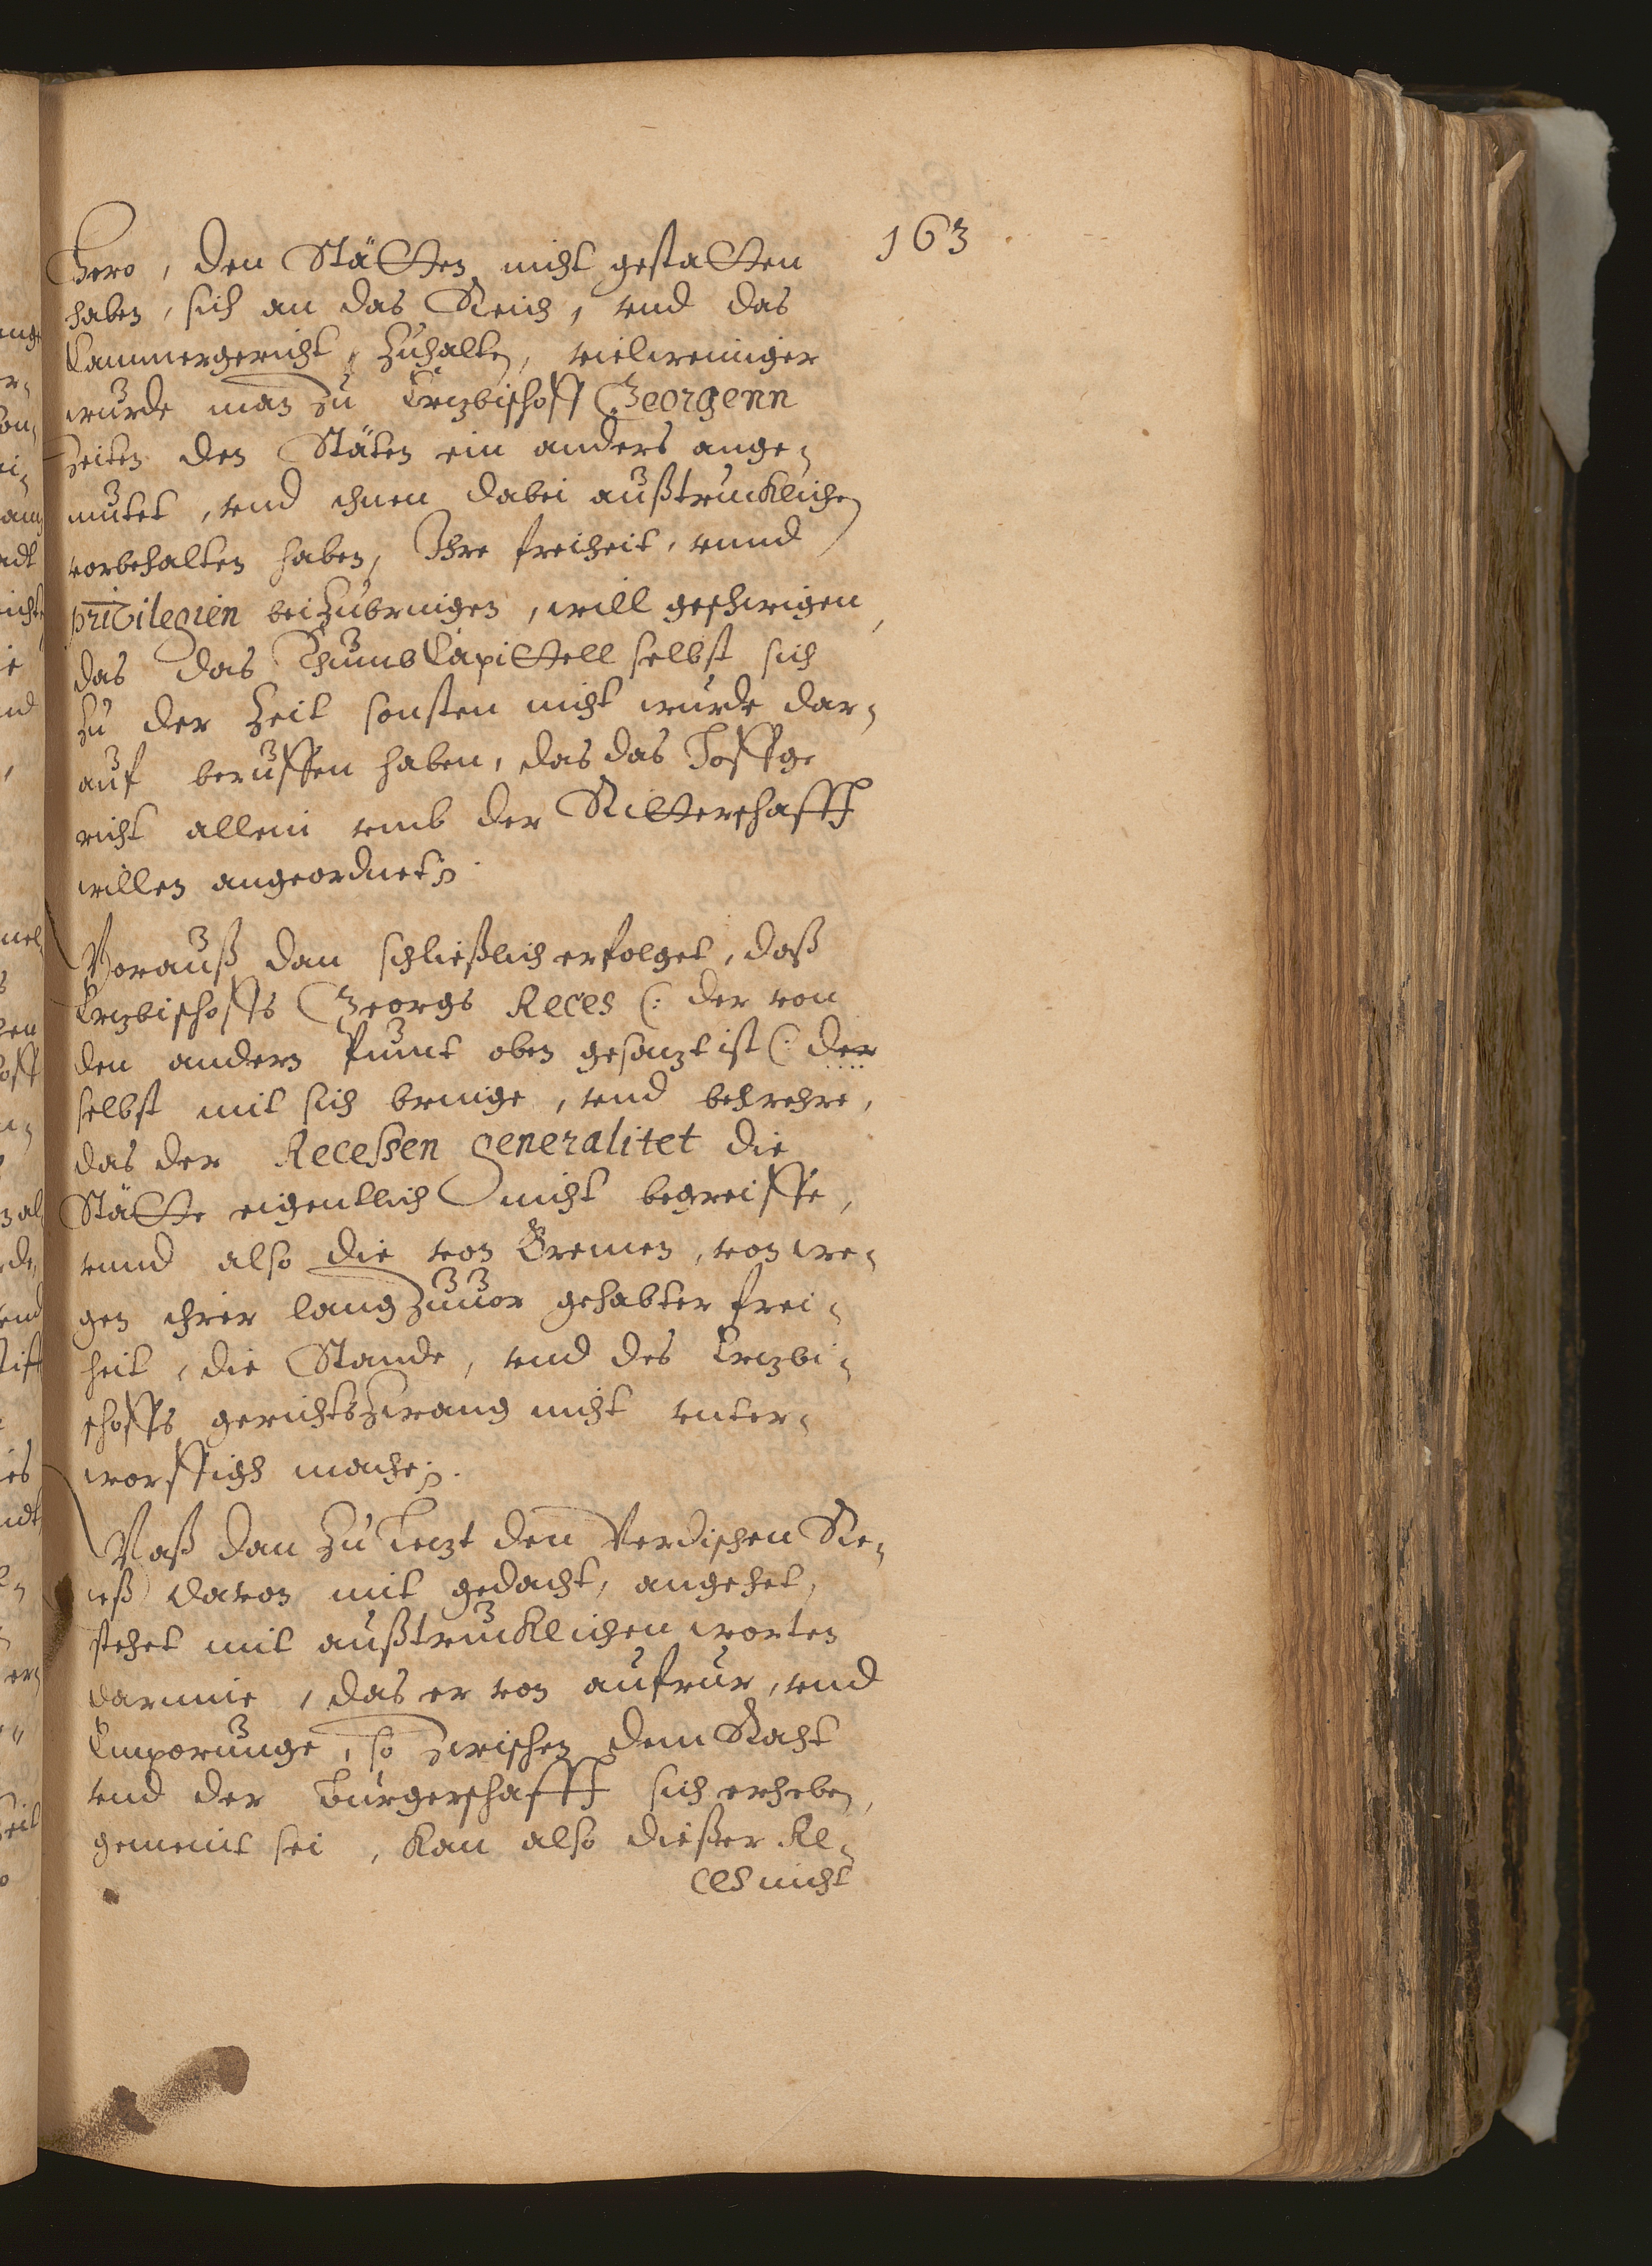 163
hero, den Stätten nicht gestatten
haben, sich an das Reich, vnd das
Cammergericht, zuhalten, vielweiniger
wurde man zu Ertzbischoff Georgenn
Zeiten den Stäten ein anders ange-
mutet, vnd ihnen dabei außtrucklichen
vorbehalten haben, Ihre freiheit, vnnd
privilegien beizubringen, will geschwigen,
das das ThumbCapittell selbst sich
zu der Zeit sonsten nicht wurde dar-
auf beruffen haben, das das Hoffge
richt allein vmb der Ritterschafft
willen angeordnet.
Worauß dan schließlich erfolget, daß
Ertzbischoffs Georgs Reces (: der von
den andern Punct oben gesatzt ist (: der
selbst mit sich bringe, vnd behrehre,
das der Receßen generalitet die
Stätte eigentlich nicht begreiffe,
vnnd also die von Bremen, von we-
gen ihrer lang zuuor gehabter frei-
heit, die Stande, vnd des Ertzbi-
schoffs gerichtszwang nicht vnter-
worffigh mache.
Waß dan zu Letzt den Verdischen Re-
ceß davon mit gedacht, angehet,
stehet mit außtrucklichen worten
darinne, das er von aufrur, vnd
Emporunge, so zwischen dem Raht
vnd der Burgerschafft sich erheben,
gemeint sei, kan also dießer Re-
ces nicht